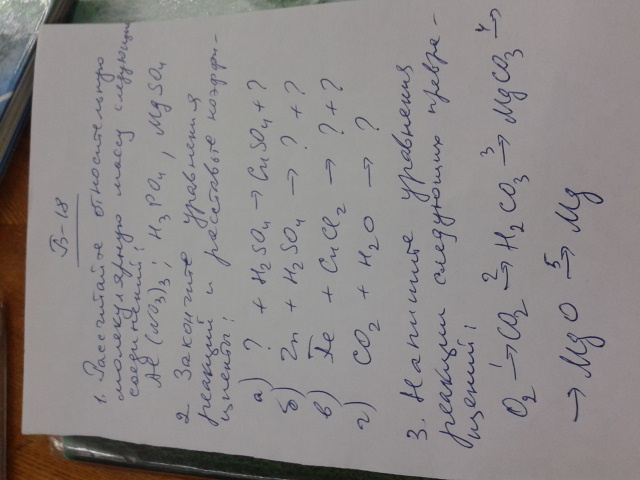 В-18
1. Рассчитайте относительную
молекулярную массу следующих
соединений:
Al(NO3)3, H3PO4, MgSO4
2. Закончите уравнения
реакций и расставьте коэффи-
циенты:
а) ? + H2SO4 → CuSO4 + ?
б) Zn + H2SO4 → ? + ?
в) Fe + CuCl2 → ? + ?
г) CO2 + H2O → ?
3. Напишите уравнения
реакции следующих превра-
щений:
O2 1→ CO2 2→ H2CO3 3→ MgCO3 4→
→ MgO 5→ Mg